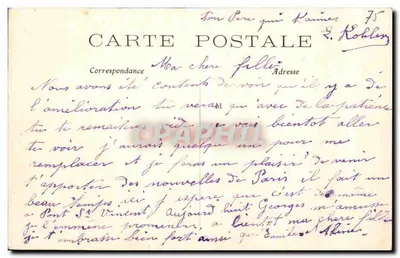 ton Pere qui t'aimes 75
E. Kohler
CARTE POSTALE
Correspondance Adresse
Ma chere fille
Nous avons été contents de voir qu'il y a de
l'amélioration tu verras qu'avec de la patience
tu te remettra je vais bientot aller
tu voir j'aurais quelqu'un pour me
remplacer et je ferai un plaisir de venir
t'apporter des nouvelles de Paris il fait un
beau temps ici j'espere que c'est de même
a Pont St Vincent Aujourd huit Georges m'amuse
je l'emmène promener, a bientot ma chere fille
je t'embrasse bien fort ainsi que Emile et Aline